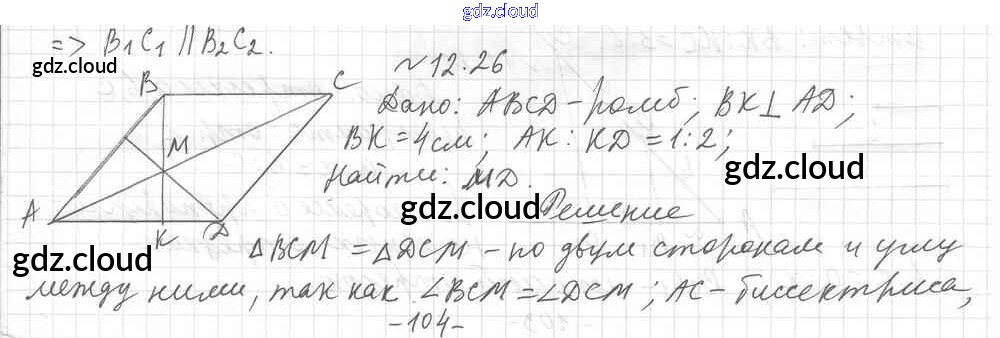 gdz.cloud
=> B₁C₁ || B₂C₂.
gdz.cloud
№12.26
B C
Дано: ABCD - ромб; BK⊥AD;
gdz.cloud
BK = 4см; AK : KD = 1:2;
gdz.cloud
M
Найти: MD.
gdz.cloud
A K D
Решение
gdz.cloud
△BCM = △DCM - по двум сторонам и углу
между ними, так как ∠BCM = ∠DCM; AC - биссектриса,
-104-